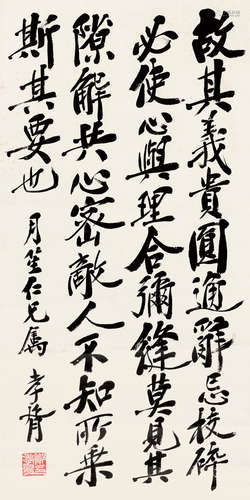 故其義貴圓通辭忌枝碎
必使心與理合彌縫莫見其
隙辭共心密敵人不知所乘
斯其要也
月笙仁兄屬 孝胥